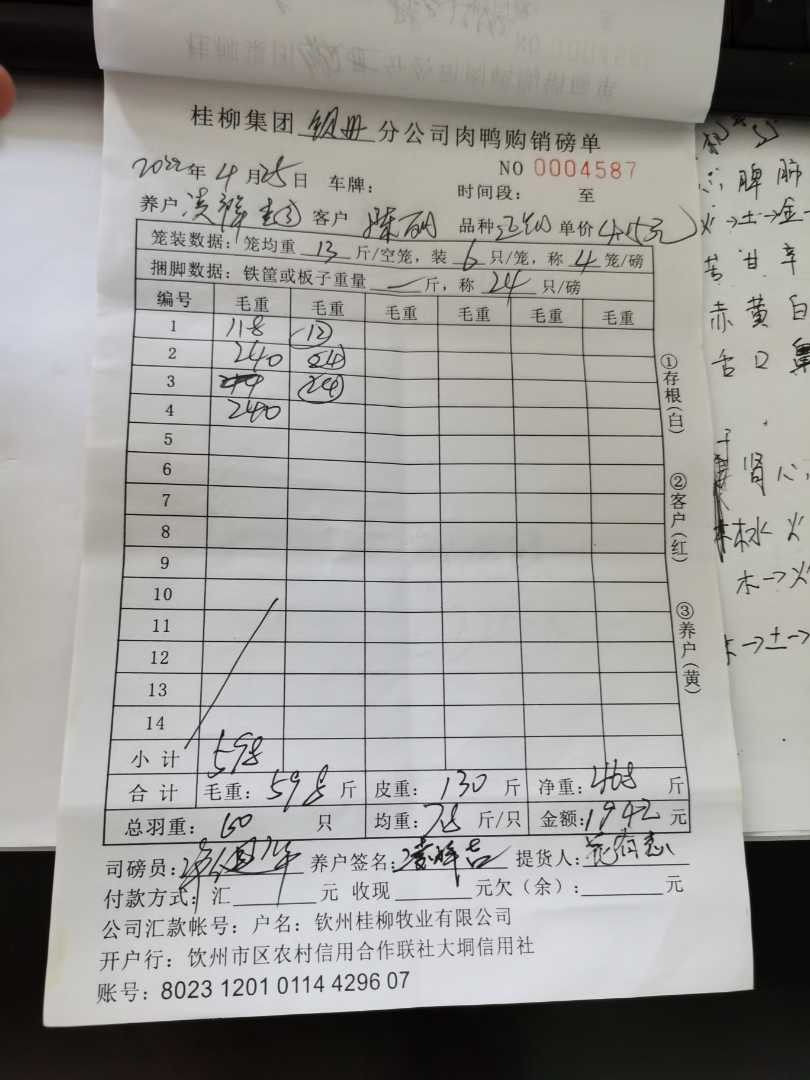 桂柳集团 钦州 分公司肉鸭购销磅单
NO 0004587
2022年 4月25日 车牌: 时间段: 至
养户 客户 陈 品种 单价 4.15元
笼装数据: 笼均重 13 斤/空笼, 装 6 只/笼, 称 4 笼/磅
捆脚数据: 铁筐或板子重量 — 斤, 称 24 只/磅
编号 毛重 毛重 毛重 毛重 毛重 毛重
1 118 (12)
2 240 (24)
3 (24)
4 240
5
6
7
8
9
10
11
12
13
14
小计 598
合计 毛重: 598 斤 皮重: 130 斤 净重: 468 斤
总羽重: 60 只 均重: 7.8 斤/只 金额: 1942 元
司磅员: 养户签名: 提货人:
付款方式: 汇 元 收现 元欠(余): 元
公司汇款帐号: 户名: 钦州桂柳牧业有限公司
开户行: 饮州市区农村信用合作联社大垌信用社
账号: 8023 1201 0114 4296 07
①存根(白)
②客户(红)
③养户(黄)
脾 肺
火→土→金
苦 甘 辛
赤 黄 白
舌 口 鼻
肾 心
水 火
木→火
木→土→